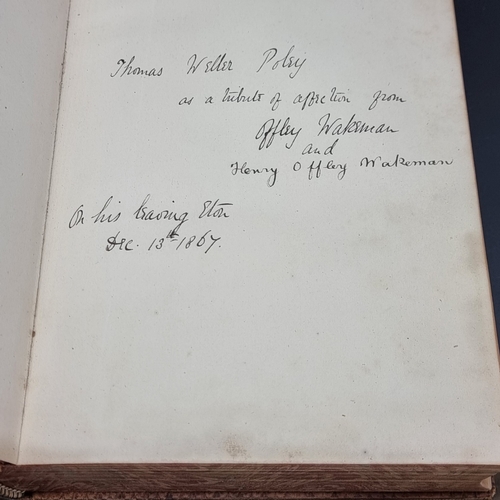 Thomas Weller Poley
as a tribute of affection from
Offley Wakeman
and
Henry Offley Wakeman
On his leaving Eton
Dec. 13th 1867.